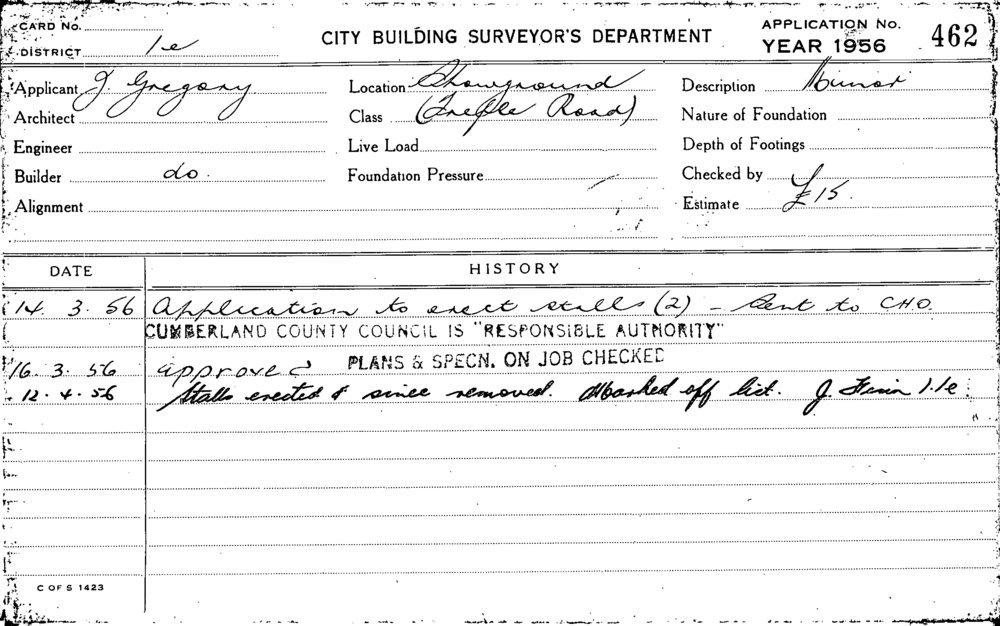 CARD No.
DISTRICT 1e
CITY BUILDING SURVEYOR'S DEPARTMENT
APPLICATION No. 462
YEAR 1956
Applicant J. Gregory
Location Showground
Description Minor
Architect
Class Road)
Nature of Foundation
Engineer
Live Load
Depth of Footings
Builder do.
Foundation Pressure
Checked by
Alignment
Estimate £15.
DATE HISTORY
14. 3. 56 Application to erect stalls (2) - Sent to C.H.O.
CUMBERLAND COUNTY COUNCIL IS "RESPONSIBLE AUTHORITY"
PLANS & SPECN. ON JOB CHECKED
16. 3. 56 approved
12. 4. 56 Stalls erected & since removed. Marked off list. J. 1.1e
C OF S 1423